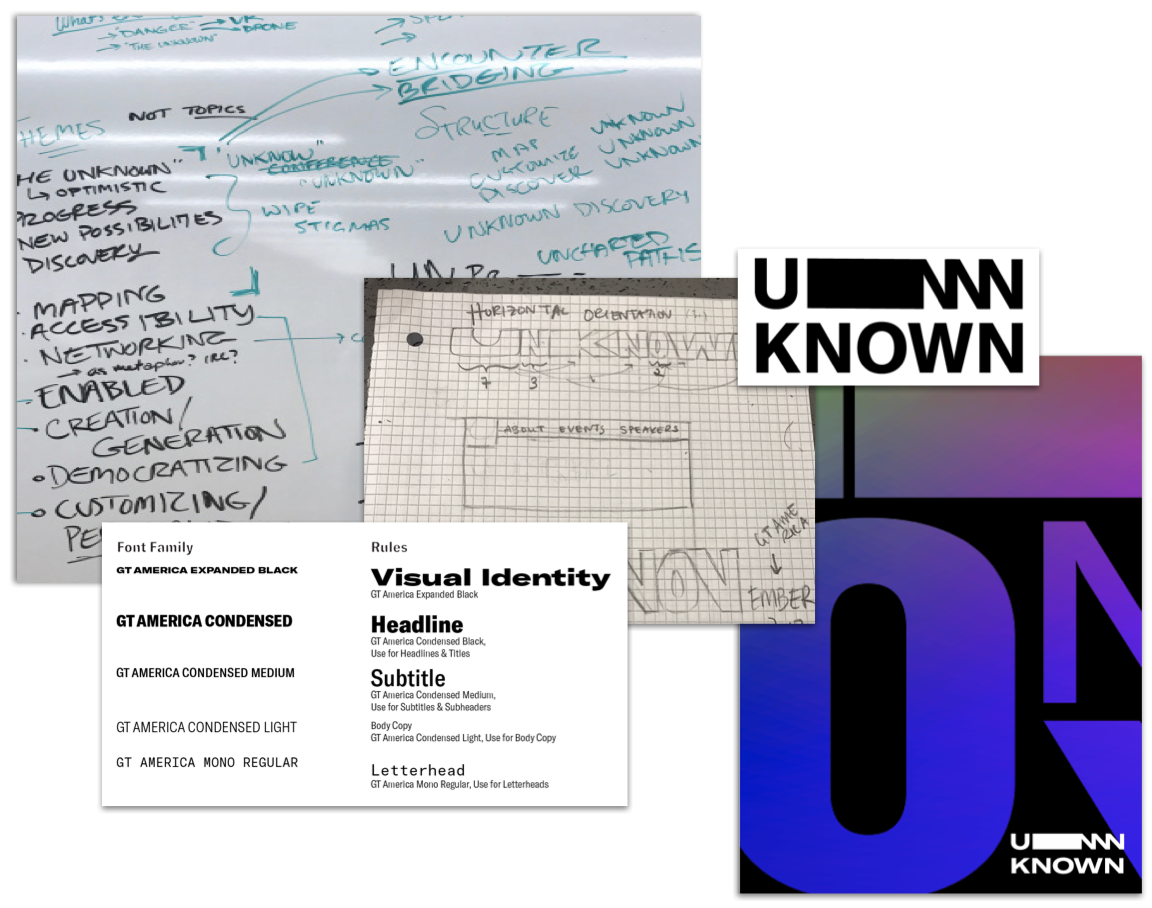 "DANGER" → VR
→ DRONE
→ "THE UNKNOWN"
ENCOUNTER
BRIDGING
NOT TOPICS
HEMES
STRUCTURE
MAP
CUSTOMIZE
DISCOVER
UNKNOWN
UNKNOWN
UNKNOWN
"UNKNOW"
CONFERENCE
"UNKNOWN"
HE UNKNOWN"
↳ OPTIMISTIC
PROGRESS
NEW POSSIBILITIES
DISCOVERY
WIPE
STIGMAS
UNKNOWN DISCOVERY
UNCHARTED
PATHS
· MAPPING
· ACCESSIBILITY
· NETWORKING
→ as metaphor? IRL?
- ENABLED
• CREATION/
GENERATION
• DEMOCRATIZING
• CUSTOMIZING/
HORIZONTAL ORIENTATION
UNKNOWN
7 3 2
ABOUT EVENTS SPEAKERS
GT AME
RICA
↓
EMBER
NOW
U NNN
KNOWN
Font Family
GT AMERICA EXPANDED BLACK
GT AMERICA CONDENSED
GT AMERICA CONDENSED MEDIUM
GT AMERICA CONDENSED LIGHT
GT AMERICA MONO REGULAR
Rules
Visual Identity
GT America Expanded Black
Headline
GT America Condensed Black,
Use for Headlines & Titles
Subtitle
GT America Condensed Medium,
Use for Subtitles & Subheaders
Body Copy
GT America Condensed Light, Use for Body Copy
Letterhead
GT America Mono Regular, Use for Letterheads
ON
U NNN
KNOWN